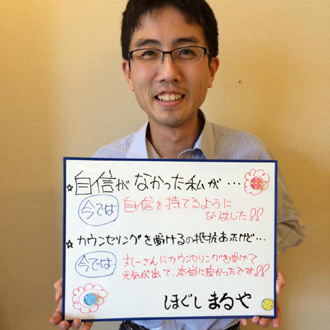 ☆自信がなかった私が…
今では 自信を持てるように
なりました!!
☆カウンセリングを受けるの抵抗あったけど…
今では すしーさんにカウンセリングを受けて
元気が出て、本当に良かったです!!
ほぐし まるや